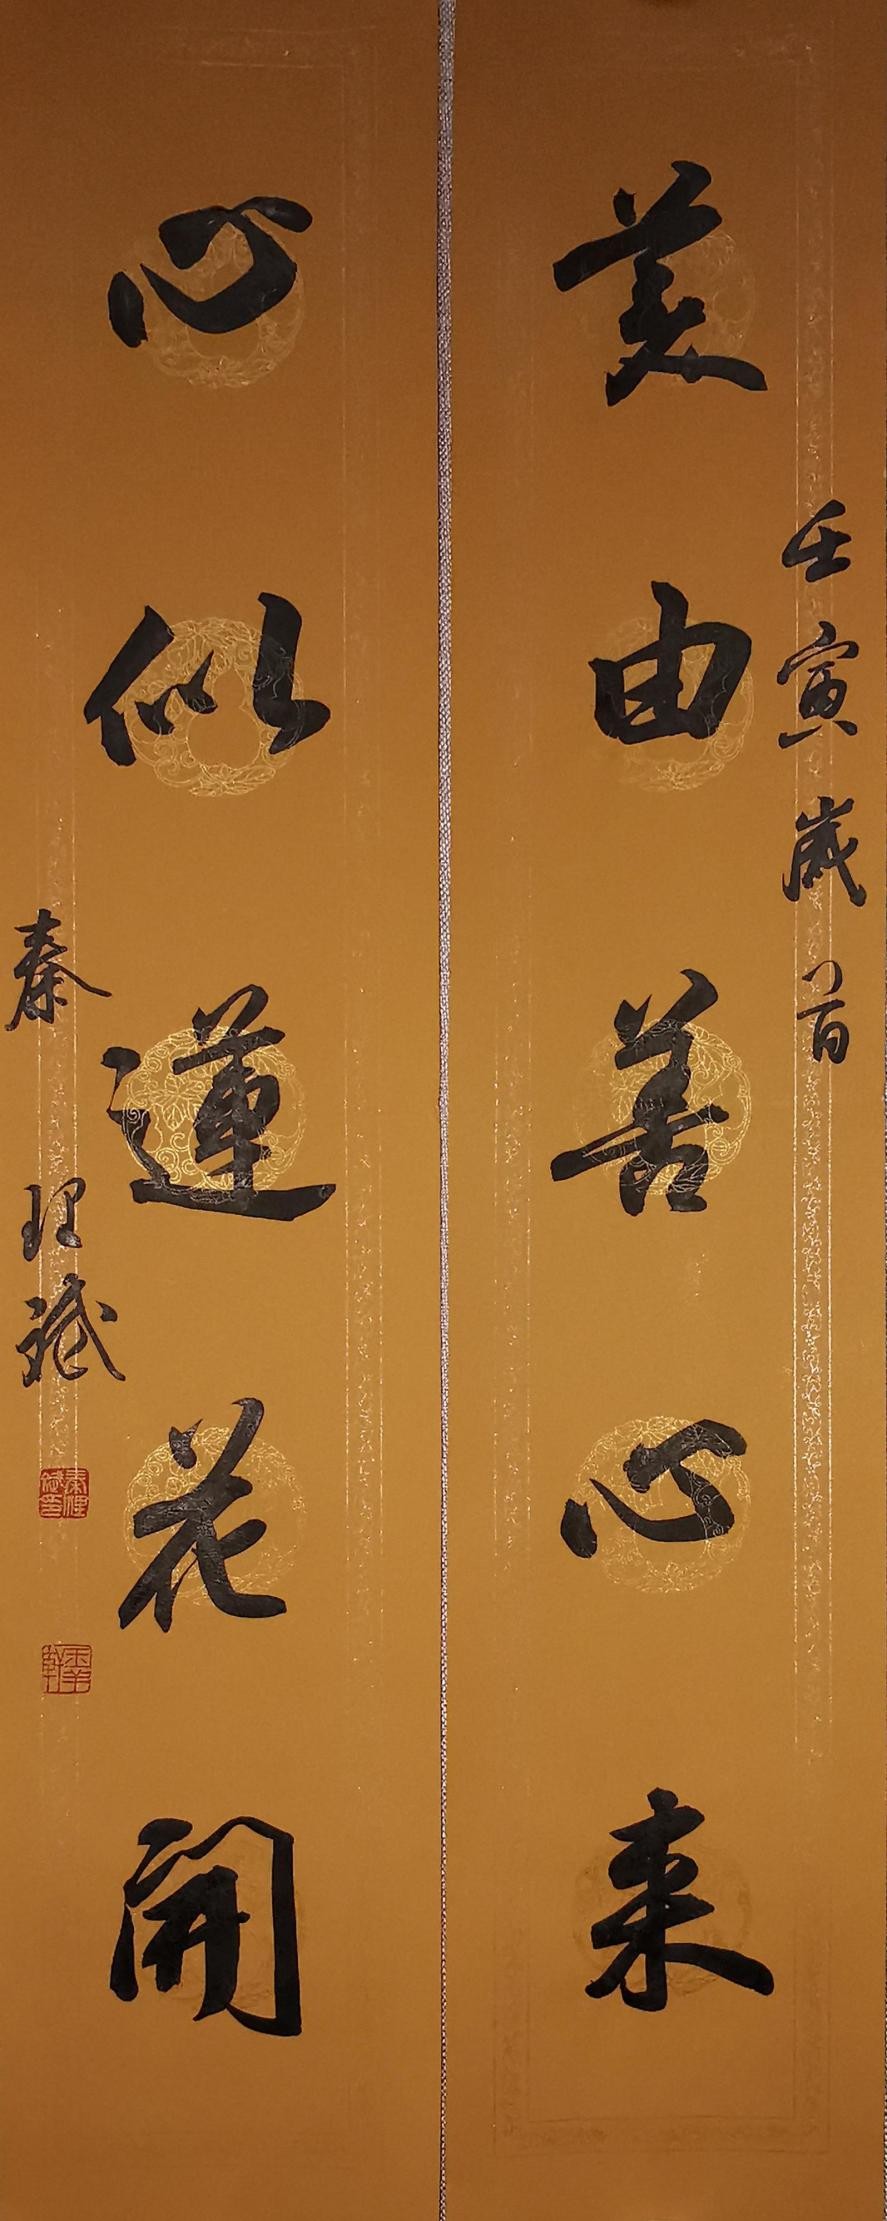 美由善心来
壬寅岁首
心似蓮花開
秦理斌